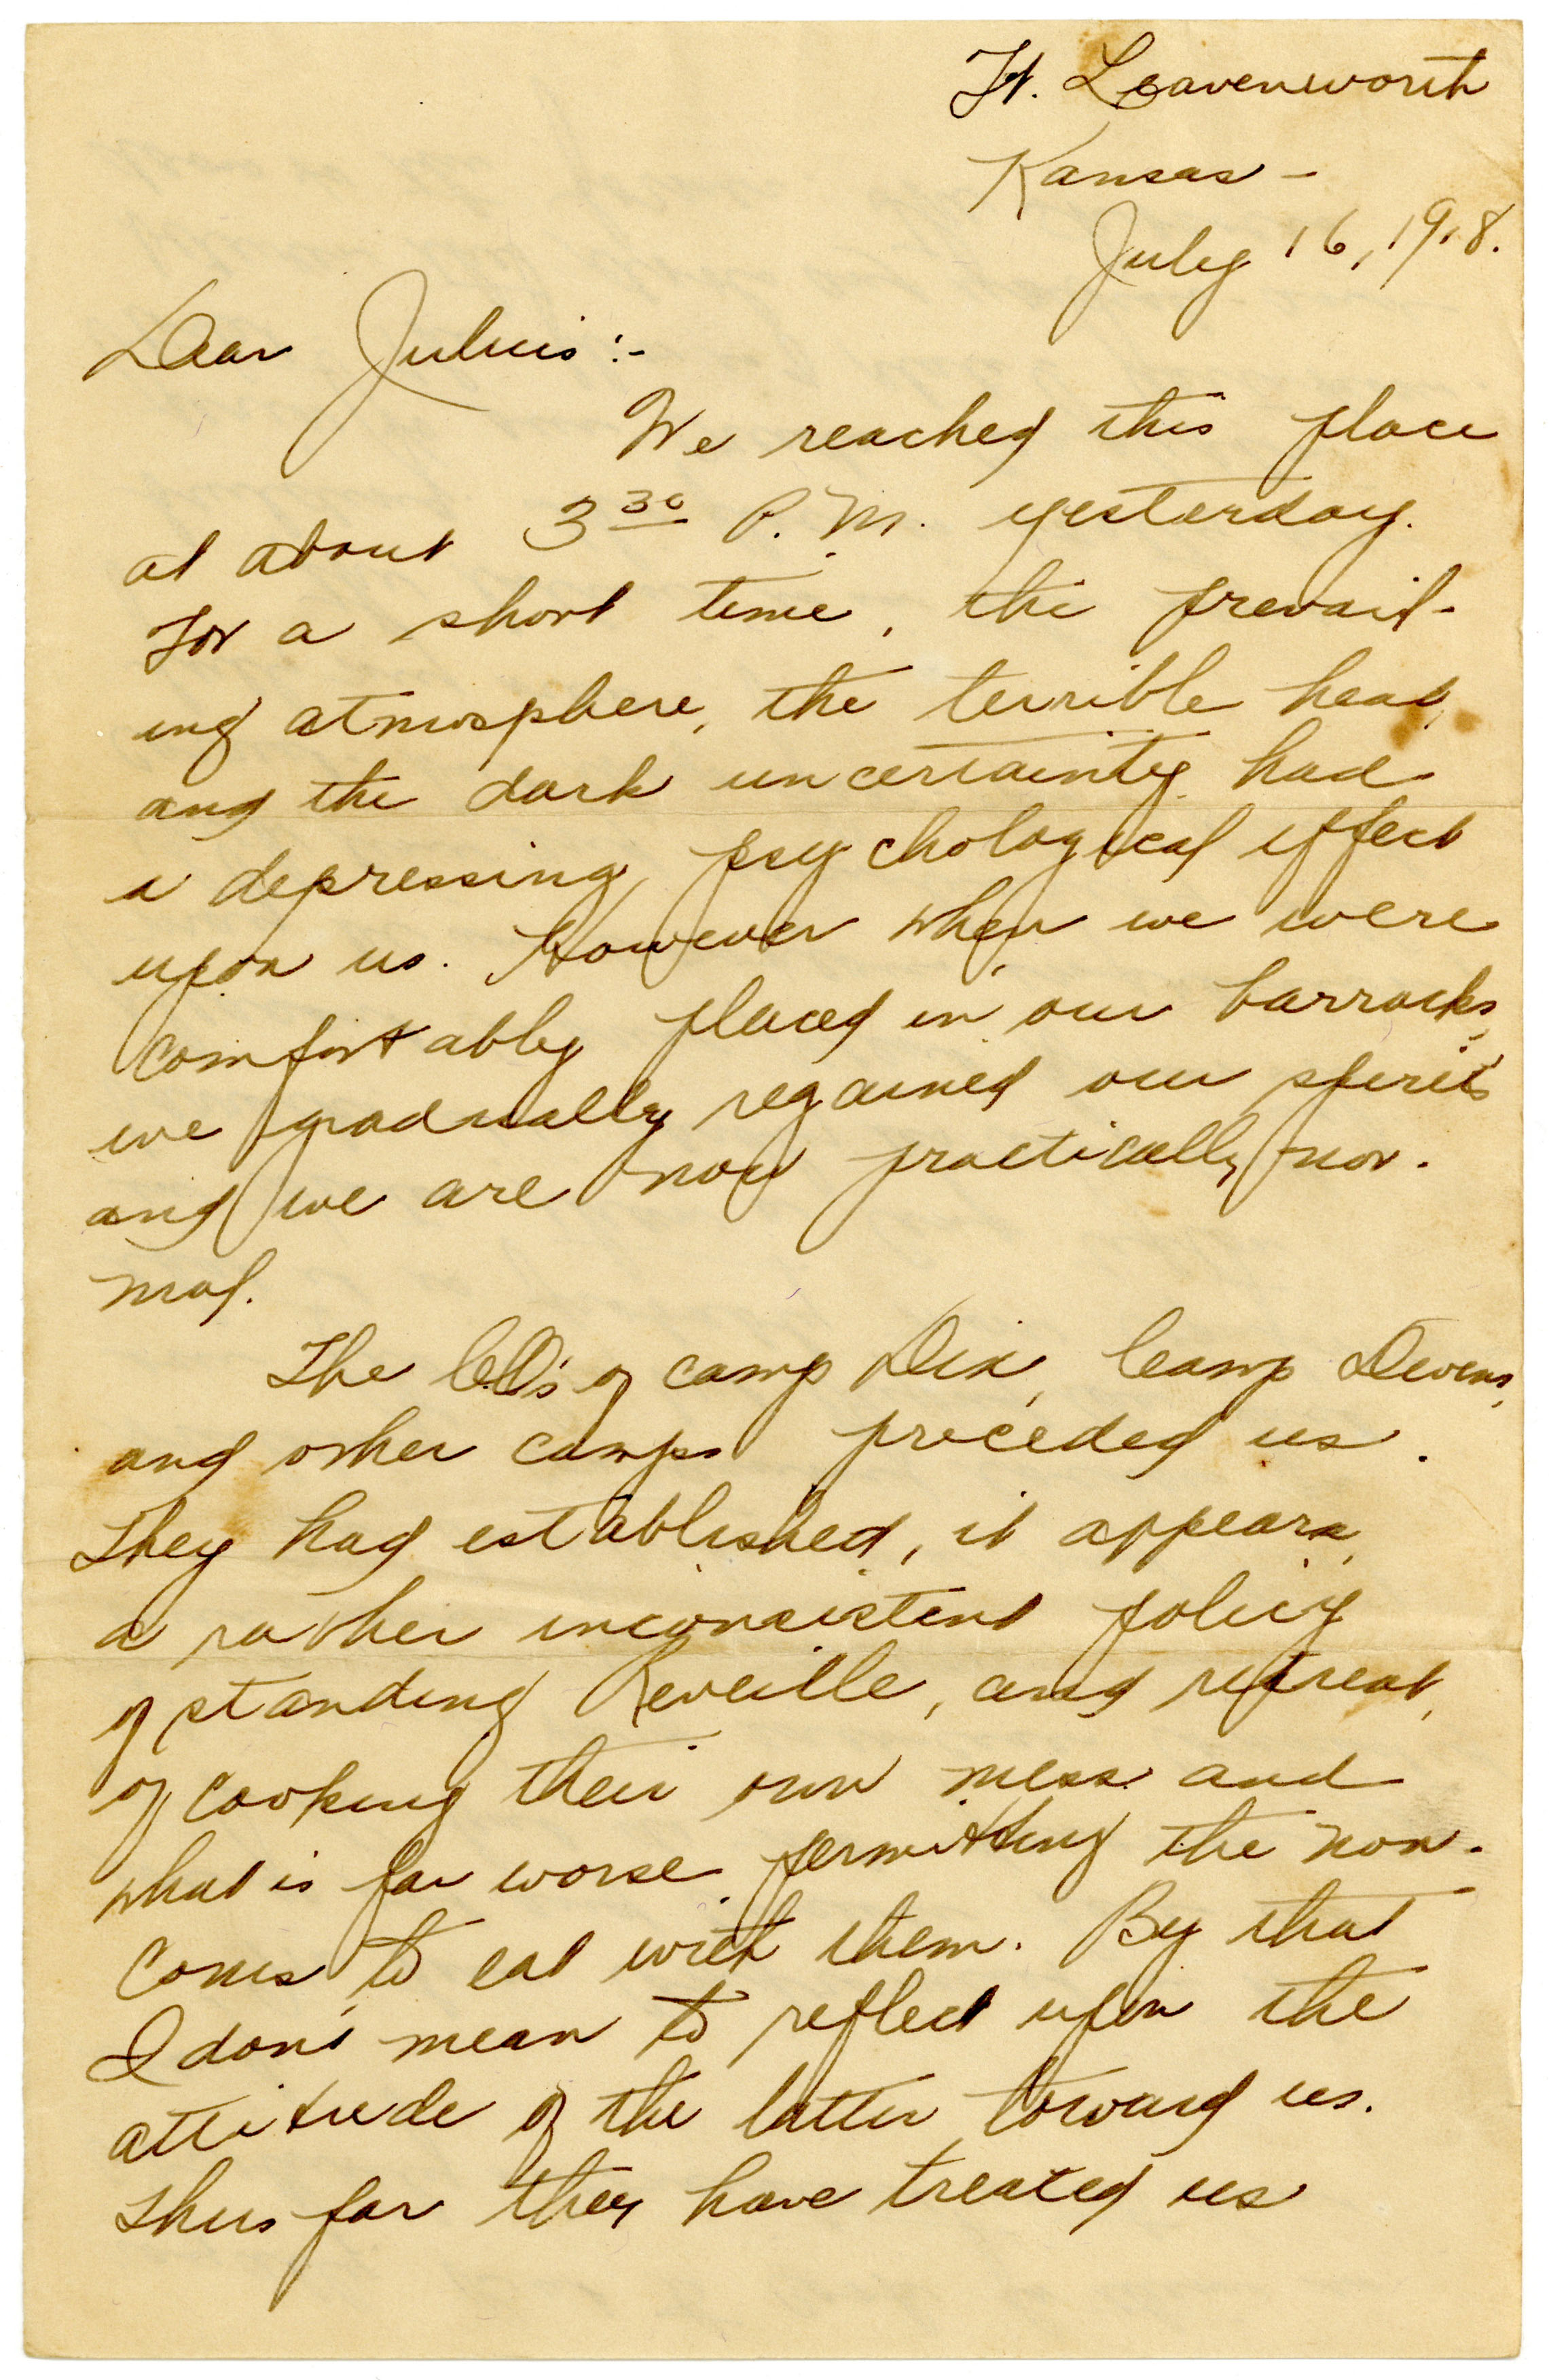 Ft. Leavenworth
Kansas –
July 16, 1918.
Dear Julius :-
We reached this place
at about 3 30 P.M. yesterday.
For a short time, the prevail-
ing atmosphere, the terrible heat,
and the dark uncertainty had
a depressing psychological effect
upon us. However when we were
comfortably placed in our barracks,
we gradually regained our spirits
and we are now practically nor-
mal.
The C.O's of camp Dix, Camp Devens,
and other camps preceded us.
They had established, it appears,
a rather inconsistent policy
of standing Reveille, and retreat,
of cooking their own mess and
what is far worse permitting the non-
coms to eat with them. By that
I don't mean to reflect upon the
attitude of the latter toward us.
Thus far they have treated us